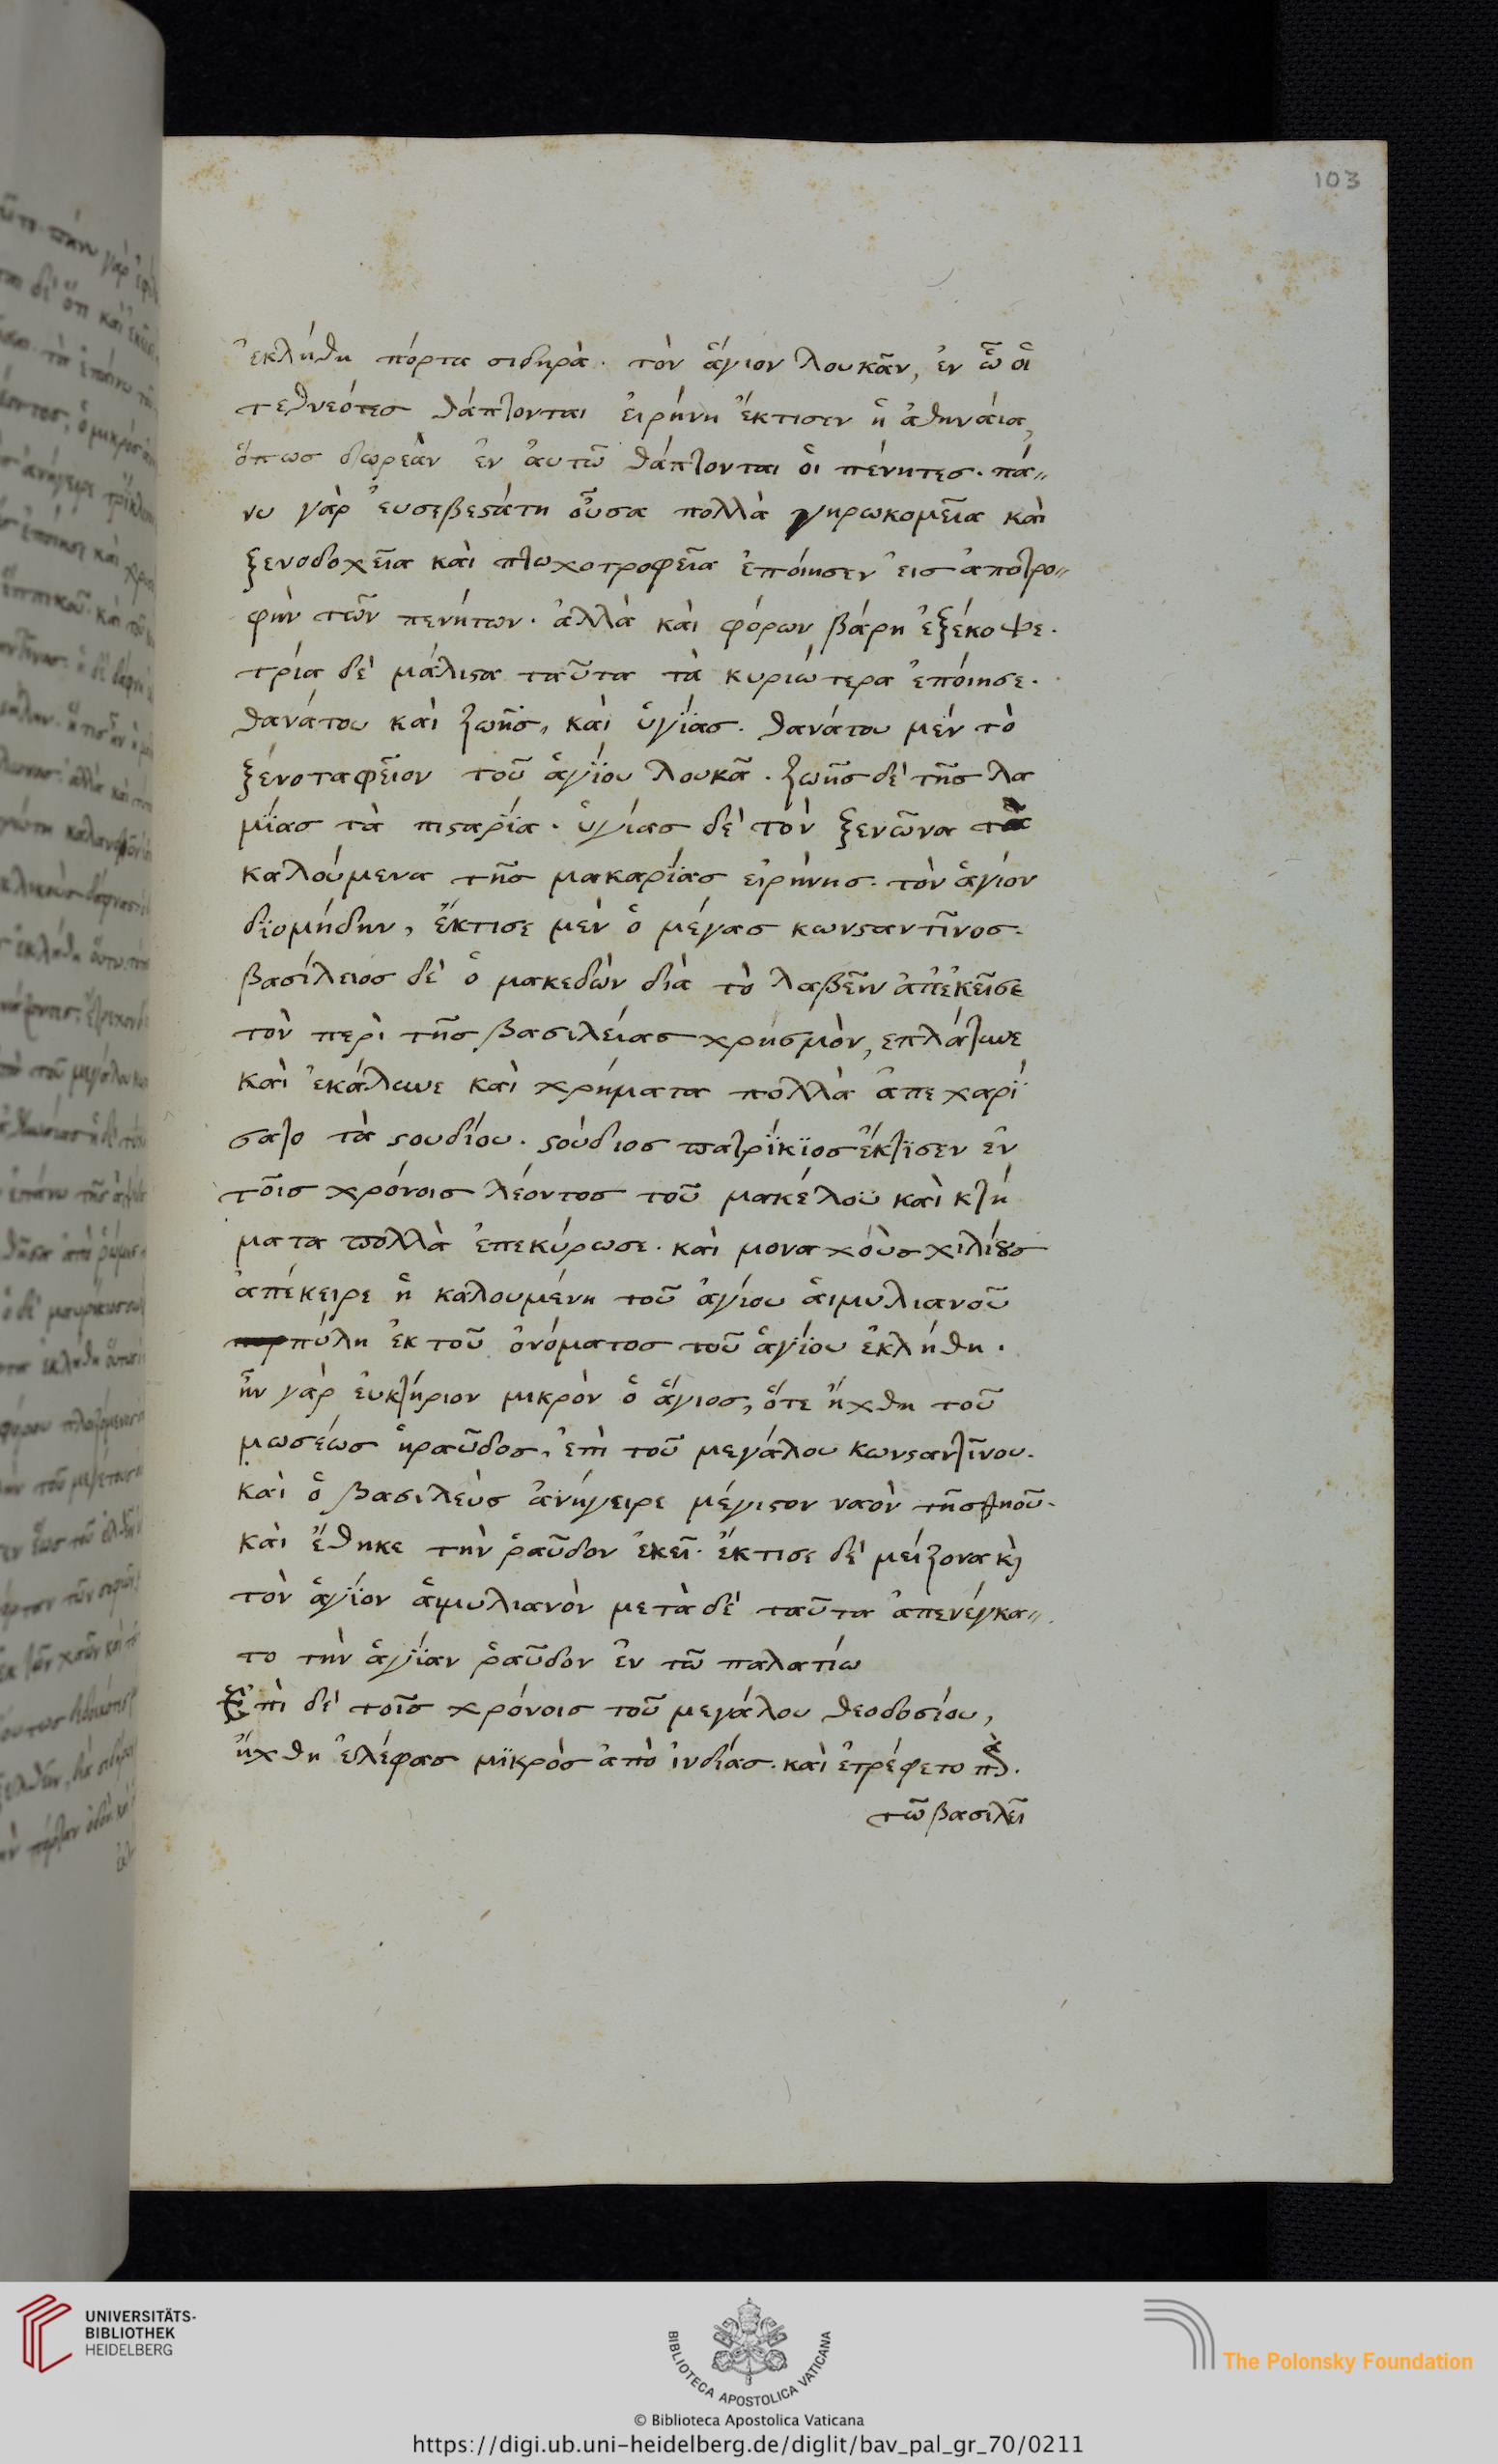 103
ἐκλήθη πόρτα σιδηρὰ. τὸν ἅγιον λουκᾶν, ἐν ᾧ οἱ
τεθνεότες θάπτονται εἰρήνη ἔκτισεν ἡ ἀθηνάια,
ὅπως δωρεὰν ἐν ἀυτῶ θάπτονται ὁι πένητες. πά〃
νυ γὰρ ἐυσεβεϛάτη οὖσα πολλὰ γηρωκομεῖα καὶ
ξενοδοχεῖα καὶ πτωχοτροφεῖα ἐπόιησεν εἰς ἀποτρο〃
φὴν τῶν πενήτων. ἀλλὰ καὶ φόρων βάρη ἐξέκοψε.
τρία δὲ μάλιϛα ταῦτα τὰ κυριώτερα ἐπόιησε.
θανάτου καὶ ζωῆς, καὶ ὑγίας. θανάτου μὲν τὸ
ξένοταφεῖον τοῦ ἁγίου λουκᾶ. ζωῆς δὲ τῆς λα
μίας τὰ πιϛαρία. ὑγίας δὲ τὸν ξενῶνα τὰ
καλούμενα τῆς μακαρίας εἰρήνης. τὸν ἅγιον
διομήδην, ἔκτισε μὲν ὁ μέγας κωνϛαντῖνος.
βασίλειος δὲ ὁ μακεδὼν διὰ τὸ λαβεῖν ἀπἐκεῖσε
τὸν περὶ τῆς βασιλείας χρησμὸν, επλάτυνε
καὶ ἐκάλυνε καὶ χρήματα πολλὰ ἀπεχαρί
σατο τὰ ϛουδίου. ϛούδιος πατρίκιος ἔκτισεν ἐν
τοῖς χρόνοις λέοντος τοῦ μακέλου καὶ κτή
ματα πολλὰ ἐπεκύρωσε. καὶ μοναχόὺς χιλίȣς
ἀπέκειρε ἡ καλουμένη τοῦ ἁγίου ἁιμυλιανοῦ
πύλη ἐκ τοῦ ὀνόματος τοῦ ἁγίου ἐκλήθη.
ἦν γὰρ ἐυκτήριον μικρὸν ὁ ἅγιος, ὅτε ἤχθη τοῦ
μωσέως ἡραῦδος, ἐπὶ τοῦ μεγάλου κωνϛαντίνου.
καὶ ὁ βασιλεὺς ἀνήγειρε μέγιϛον ναὸν τῆς θκου.
καὶ ἔθηκε τὴν ῥαῦδον ἐκεῖ. ἔκτισε δὲ μείζονα κὶ
τὸν ἅγιον ἁιμυλιανὸν μετὰ δὲ ταῦτα ἀπενέγκα〃
το τὴν ἁγίαν ῥαῦδον ἐν τῶ παλατίω
Ἐπὶ δὲ τοῖς χρόνοις τοῦ μεγάλου θεοδοσίου,
ἤχθη ἐλέφας μικρὸς ἀπὸ ἰνδίας. καὶ ἐτρέφετο
τῶ βασιλεῖ
UNIVERSITÄTS-
BIBLIOTHEK
HEIDELBERG
BIBLIOTECA APOSTOLICA VATICANA
The Polonsky Foundation
© Biblioteca Apostolica Vaticana
https://digi.ub.uni-heidelberg.de/diglit/bav_pal_gr_70/0211